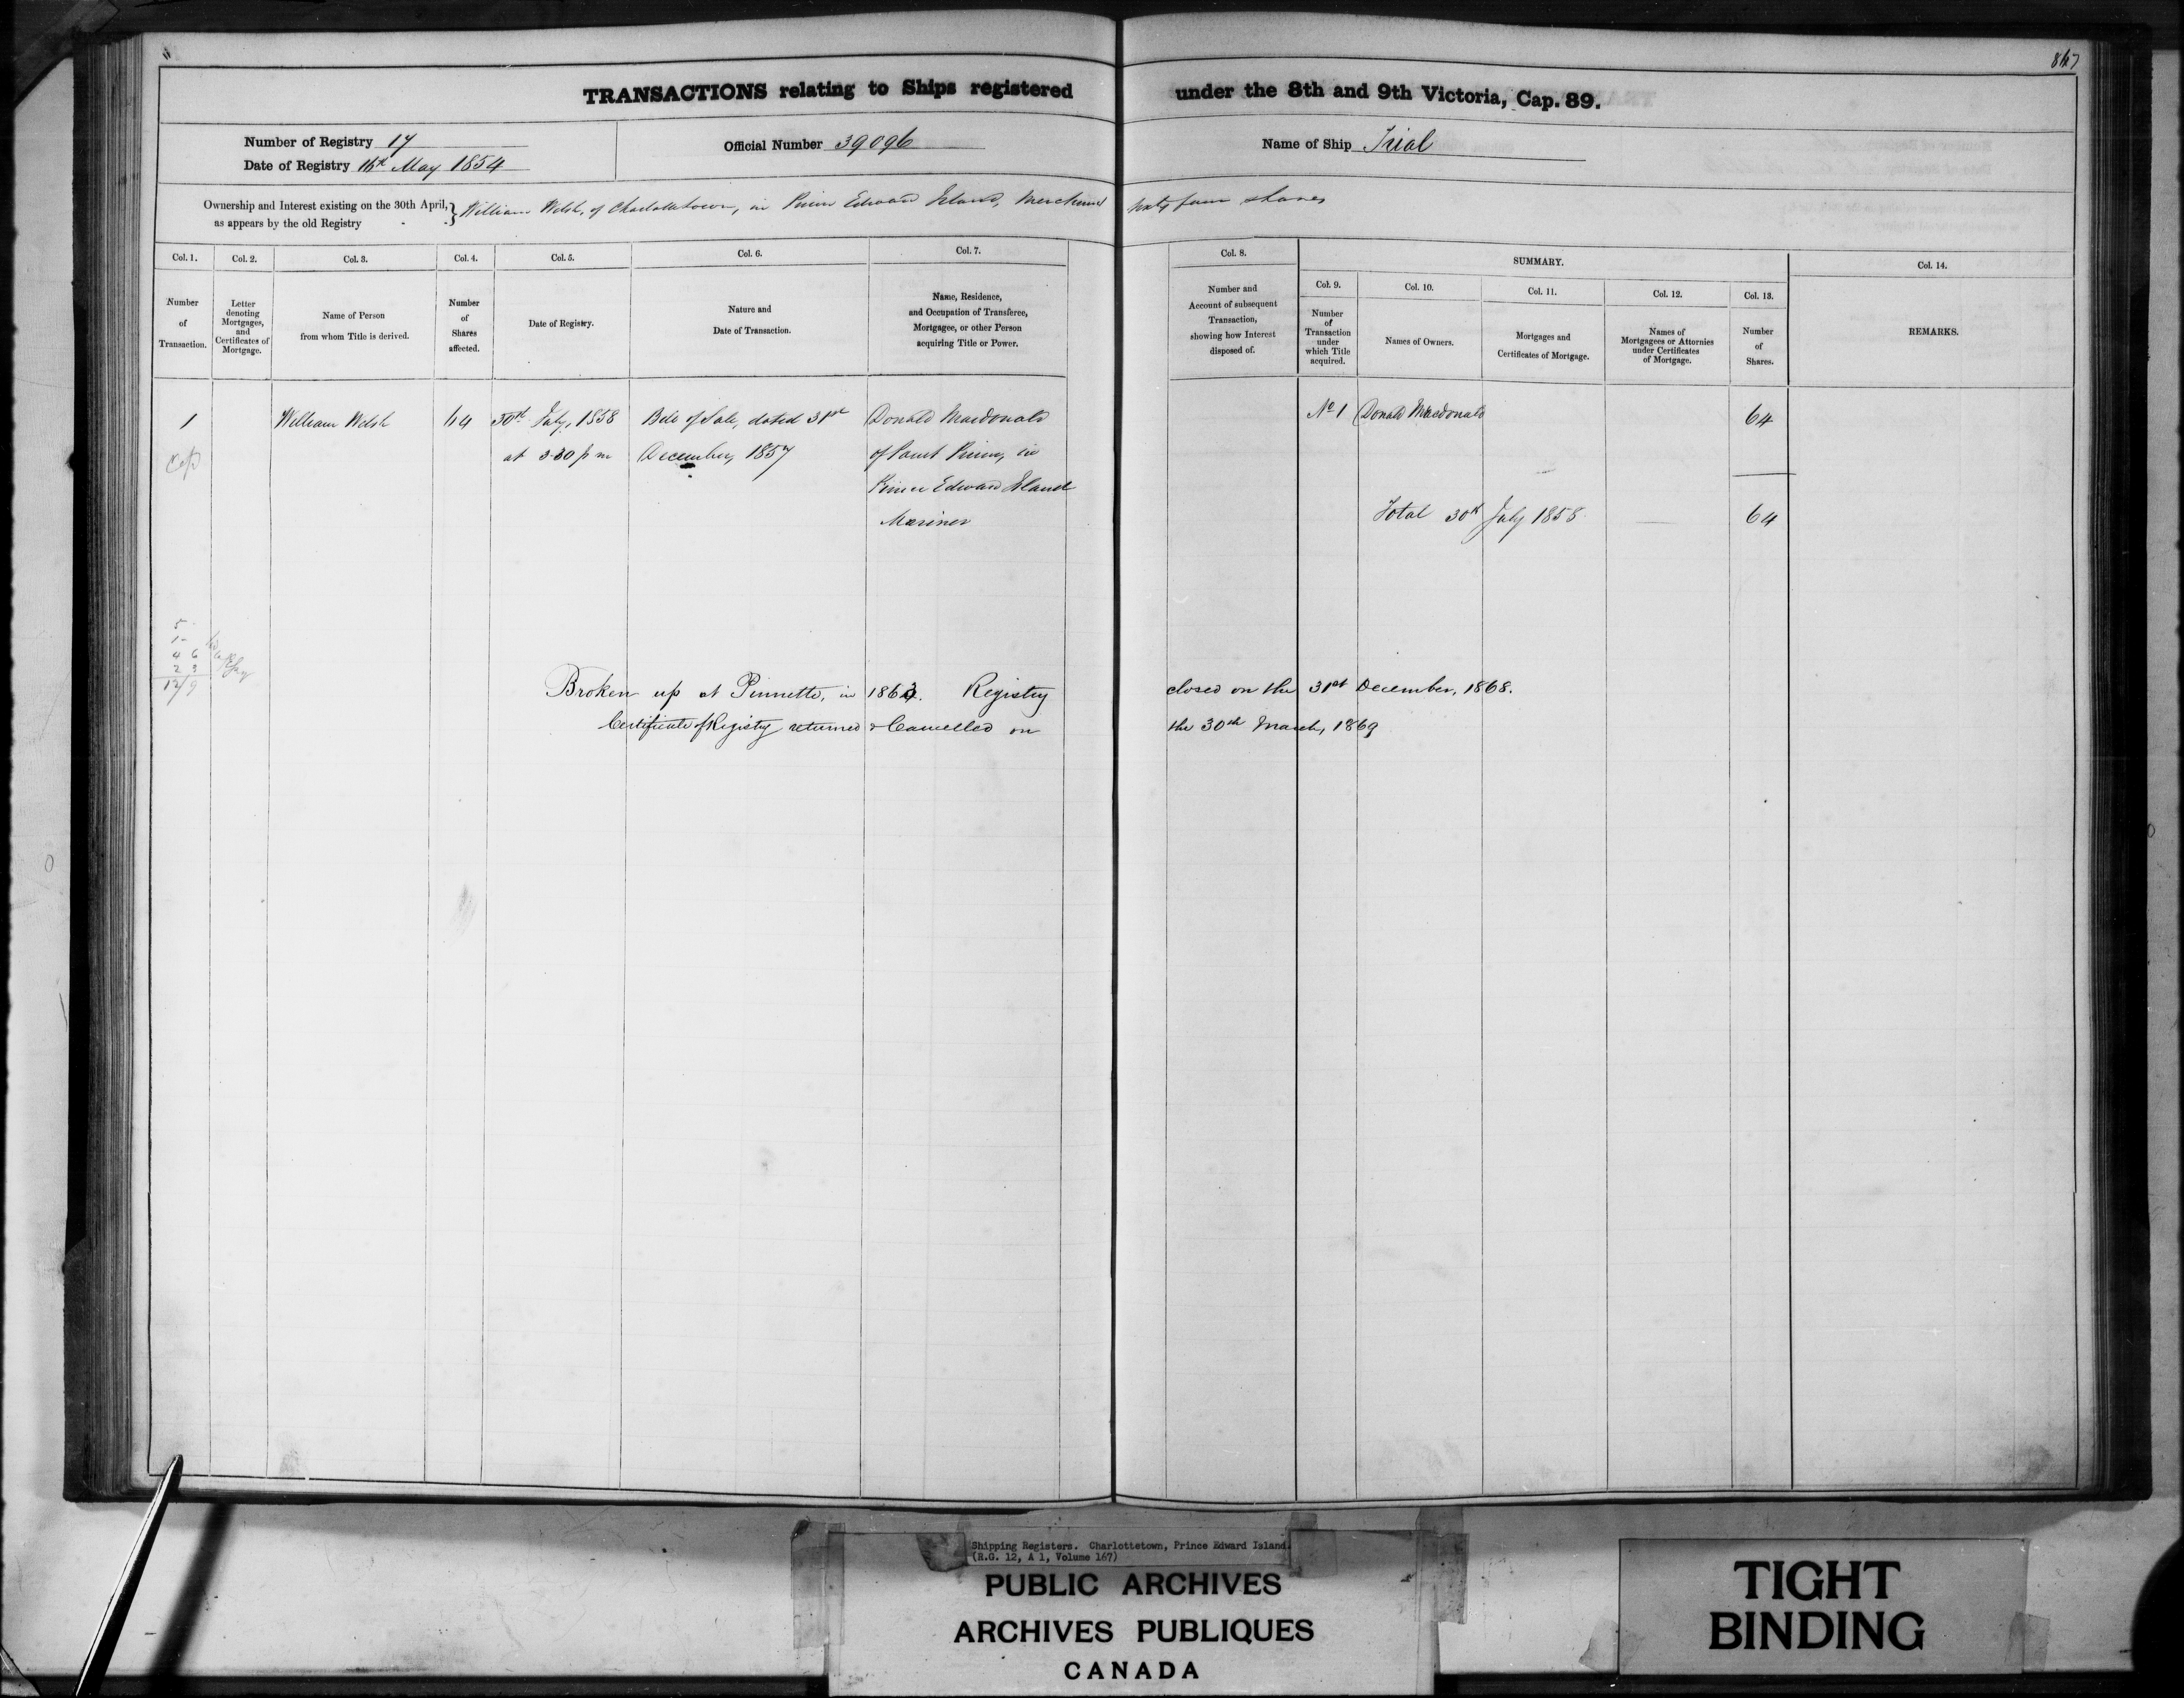 TRANSACTIONS relating to Ships registered under the 8th and 9th Victoria, Cap. 89.
Number of Registry 17
Date of Registry 16th May 1854
Official Number 39096
Name of Ship Trial
Ownership and Interest existing on the 30th April, as appears by the old Registry } William Welsh, of Charlottetown, in Prince Edward Island, Merchant sixty four shares
Col. 1. Col. 2. Col. 3. Col. 4. Col. 5. Col. 6. Col. 7. Col. 8. SUMMARY. Col. 14.
Col. 9. Col. 10. Col. 11. Col. 12. Col. 13.
Number of Transaction.
Letter denoting Mortgages, and Certificates of Mortgage.
Name of Person from whom Title is derived.
Number of Shares affected.
Date of Registry.
Nature and Date of Transaction.
Name, Residence, and Occupation of Transferee, Mortgagee, or other Person acquiring Title or Power.
Number and Account of subsequent Transaction, showing how Interest disposed of.
Number of Transaction under which Title acquired.
Names of Owners.
Mortgages and Certificates of Mortgage.
Names of Mortgagees or Attornies under Certificates of Mortgage.
Number of Shares.
REMARKS.
1 William Welsh 64 30th July, 1858 Bill of Sale, dated 31st Donald Macdonald No 1 Donald Macdonald 64
at 3-30 p m December, 1857 of Point Prim, in
Prince Edward Island
Mariner
Total 30th July 1858 64
5
1-
4 6
2 3
12/9
Broken up at Pinnette, in 1863. Registry closed on the 31st December, 1868.
Certificate of Registry returned & Cancelled on the 30th March, 1869
Shipping Registers. Charlottetown, Prince Edward Island.
(R.G. 12, A 1, Volume 167)
PUBLIC ARCHIVES
ARCHIVES PUBLIQUES
CANADA
TIGHT
BINDING